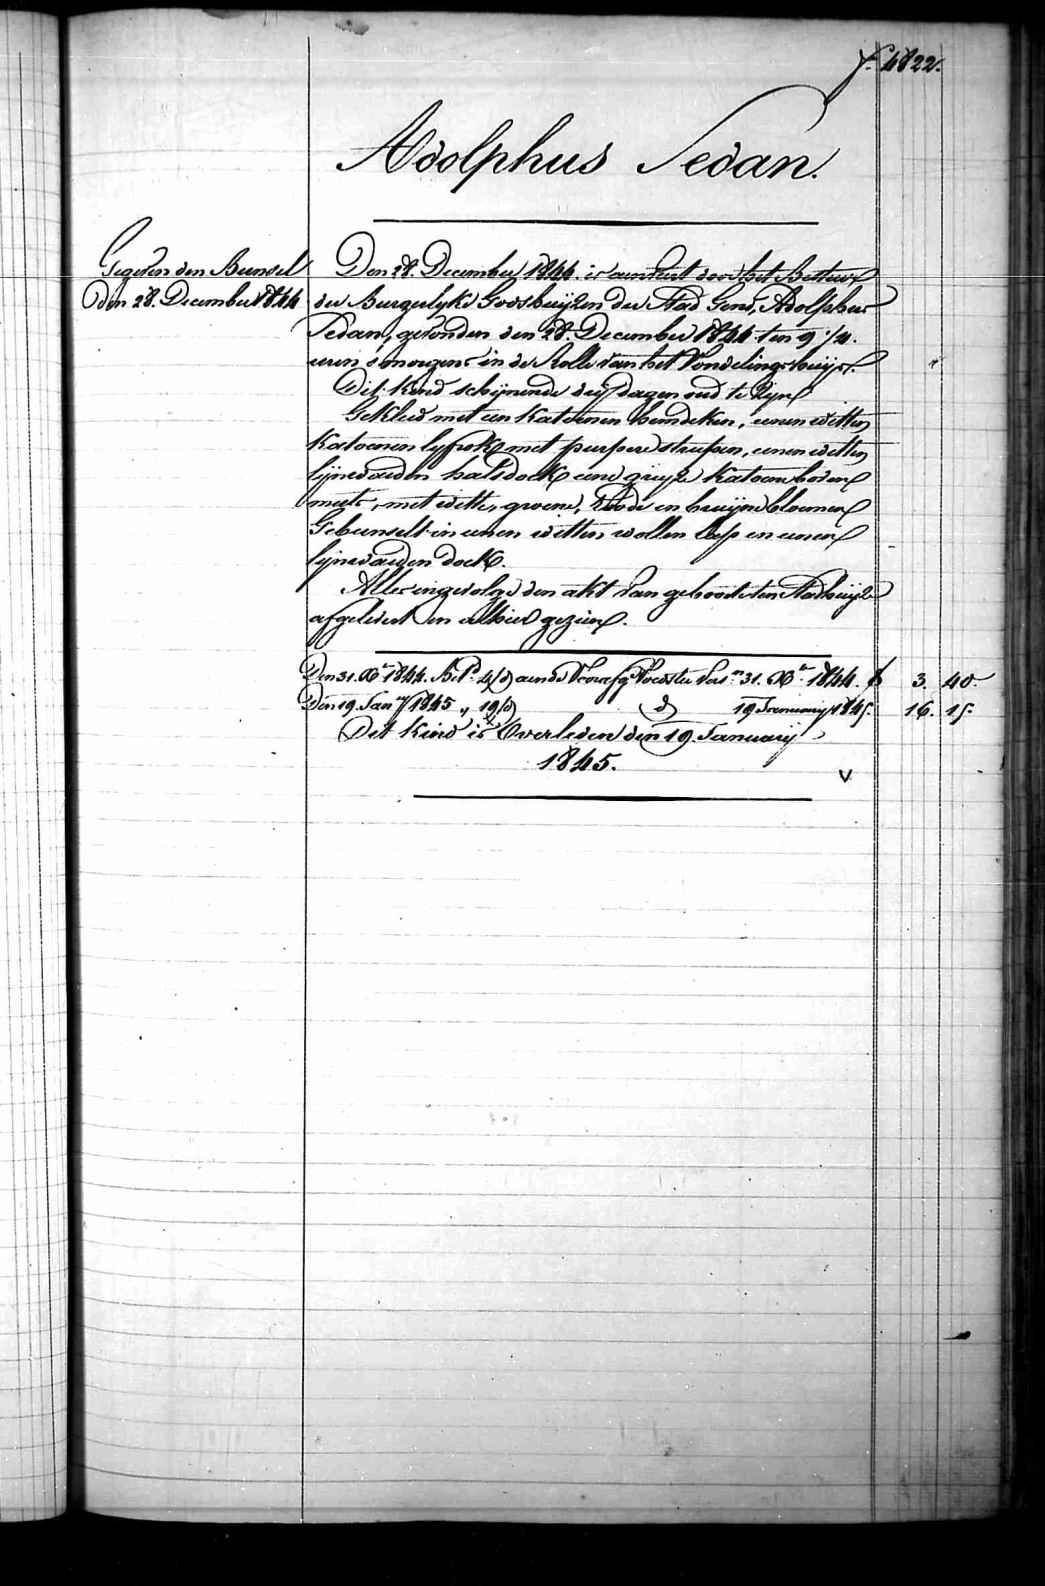 f.° 4822.
Adolphus Sedan.
Gegeven den Bunsel
den 28. December 1844
Den 28. December 1844. is aenveert door het Bestier
der Burgerlyke Godshuijzen der Stad Gend, Adolphus
Sedan, gevonden den 28. December 1844 ten 9 1/2.
uren s'morgens in de Rolle van het Vondelingshuijs.
Dit kind schijnende drij dagen oud te zijn
Gekleed met een Katoenen hemdeken, eenen witten
Katoenen lyfrok met purpere streepen, eenen witten
lijnwaeden halsdoek eene grijze Katoene bovene
muts, met witte, groene, Roode en bruijne bloemen
Gebunselt in eenen witten wollen leép en eenen
lijnwaeden doek.
Alles ingevolge den akt van geboorte ten Stadhuijze
afgelevert en alhier gezien.
Den 31. Xb. 1844. Bet. 4/d aen de Voedster 31. Xb. 1844. f 3. 40.
Den 19. Jan.ry 1845 „ 19/d d° 19 January 1845. 16. 15.
Dit kind is Overleden den 19. January
1845.